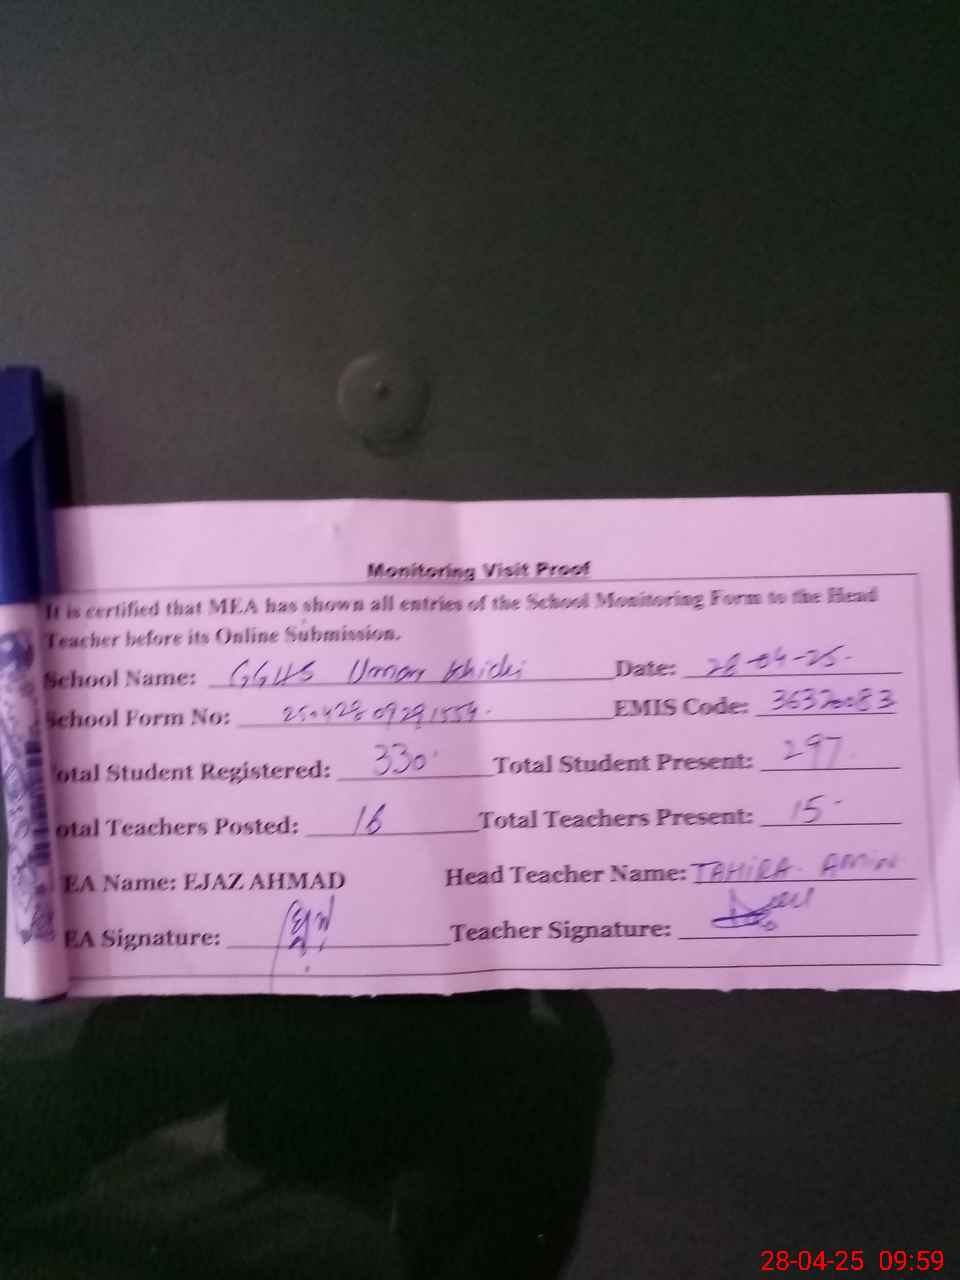 Monitoring Visit Proof
It is certified that MEA has shown all entries of the School Monitoring Form to the Head
Teacher before its Online Submission.
School Name: GGHS Umar Date: 28-04-25.
School Form No: EMIS Code:
otal Student Registered: 330 Total Student Present: 297
otal Teachers Posted: 16 Total Teachers Present: 15
EA Name: EJAZ AHMAD Head Teacher Name: TAHIRA AMIN
EA Signature: Teacher Signature:
28-04-25 09:59